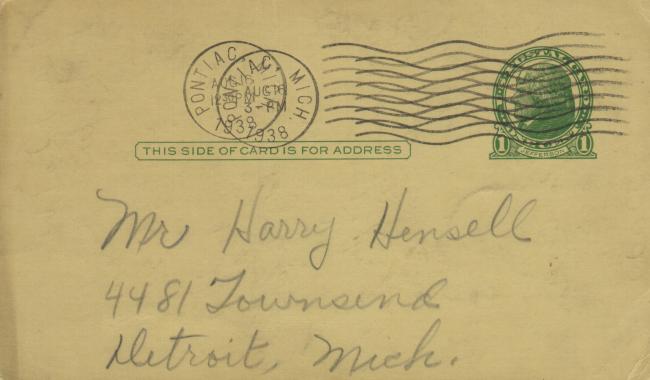 PONTIAC, MICH.
AUG 16
3 - PM
1938
PONTIAC
1938
1 JEFFERSON 1
THIS SIDE OF CARD IS FOR ADDRESS
Mr Harry Hensell
4481 Townsend
Detroit, Mich.